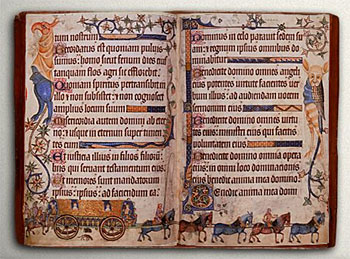 tum nostrum:
Recordatus est quoniam puluis
sumus: homo sicut fenum dies eius
tanquam flos agri sic efflorebit.
Quoniam spiritus pertransibit in
illo: et non subsistet: et non cognoscet
amplius locum suum.
Misericordia autem domini ab eter
no: et usque in eternum super timen
tes eum.
Et iusticia illius in filios filiorum:
hiis qui seruant testamentum eius.
Et memores sunt mandatorum
ipsius: ad faciendum ea.
Dominus in celo parauit sedem su
am: et regnum ipsius omnibus do
minabitur.
Benedicite domino omnes angeli
eius potentes uirtute facientes uer
bum illius ad audiendam
Benedicite domino omnes uirtu
tes eius: ministri eius qui facitis
uoluntatem eius.
Benedicite domino omnia opera
eius: in omni loco dominationis
eius benedic anima mea domino.
Benedic anima mea domi